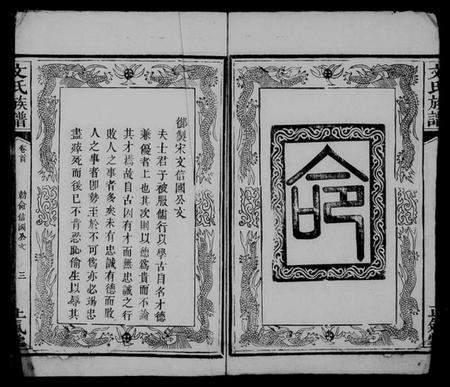 文氏族譜
命
御製宋文信國公文
夫士君子被服儒行以學古自名才德
兼優者上也其次則以德爲貴而不論
其才焉故自古因有才而無忠誠之行
敗人之事者多矣未有忠誠有德而敗
人之事者卽勢至於不可爲亦必竭忠
盡瘁死而後已不肯恧恥偷生以辱其
文氏族譜
卷首
勅命信國公文
三
正氣堂